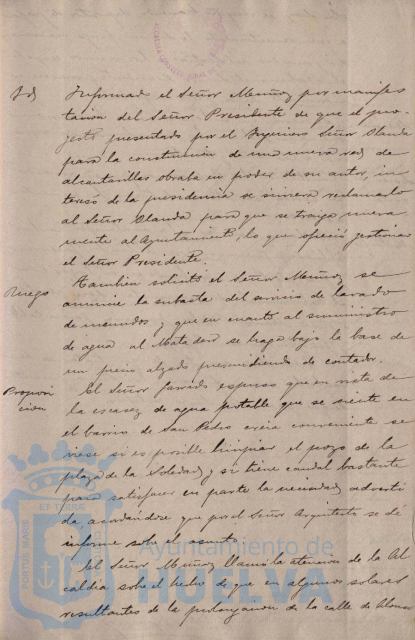 Id
Informado el Señor Muñoz por manifes
tacion del Señor Presidente de que el pro-
yecto presentado por el Ingeniero Señor Olanda
para la construccion de una nueva red de
alcantarillas obraba en poder de su autor, in
teresó de la presidencia se sirviera reclamarlo
al Señor Olanda para que se traiga nueva
mente al Ayuntamiento, lo que ofreció gestionar
el Señor Presidente.
Ruego
Tambien solicitó el Señor Muñoz se
anuncie la subasta del servicio de lavado
de menudos y que en cuanto al suministro
de agua al Matadero se haga bajo la base de
un precio alzado prescindiendo de contador.
Proposi
cion
El Señor Garrido expuso que en vista de
la escasez de agua potable que se siente en
el barrio de San Pedro creia conveniente se
viese si es posible limpiar el pozo de la
plaza de la Soledad y si tiene caudal bastante
para satisfacer en parte la necesidad adverti
da, acordandose que por el Señor Arquitecto se dé
informe sobre el asunto.
El Señor Muñoz llamó la atencion de la Al
caldia sobre el hecho de que en algunos solares
resultantes de la prolongacion de la calle de Alonso
PORTUS MARIS
ET TERRE
Ayuntamiento de
HUELVA